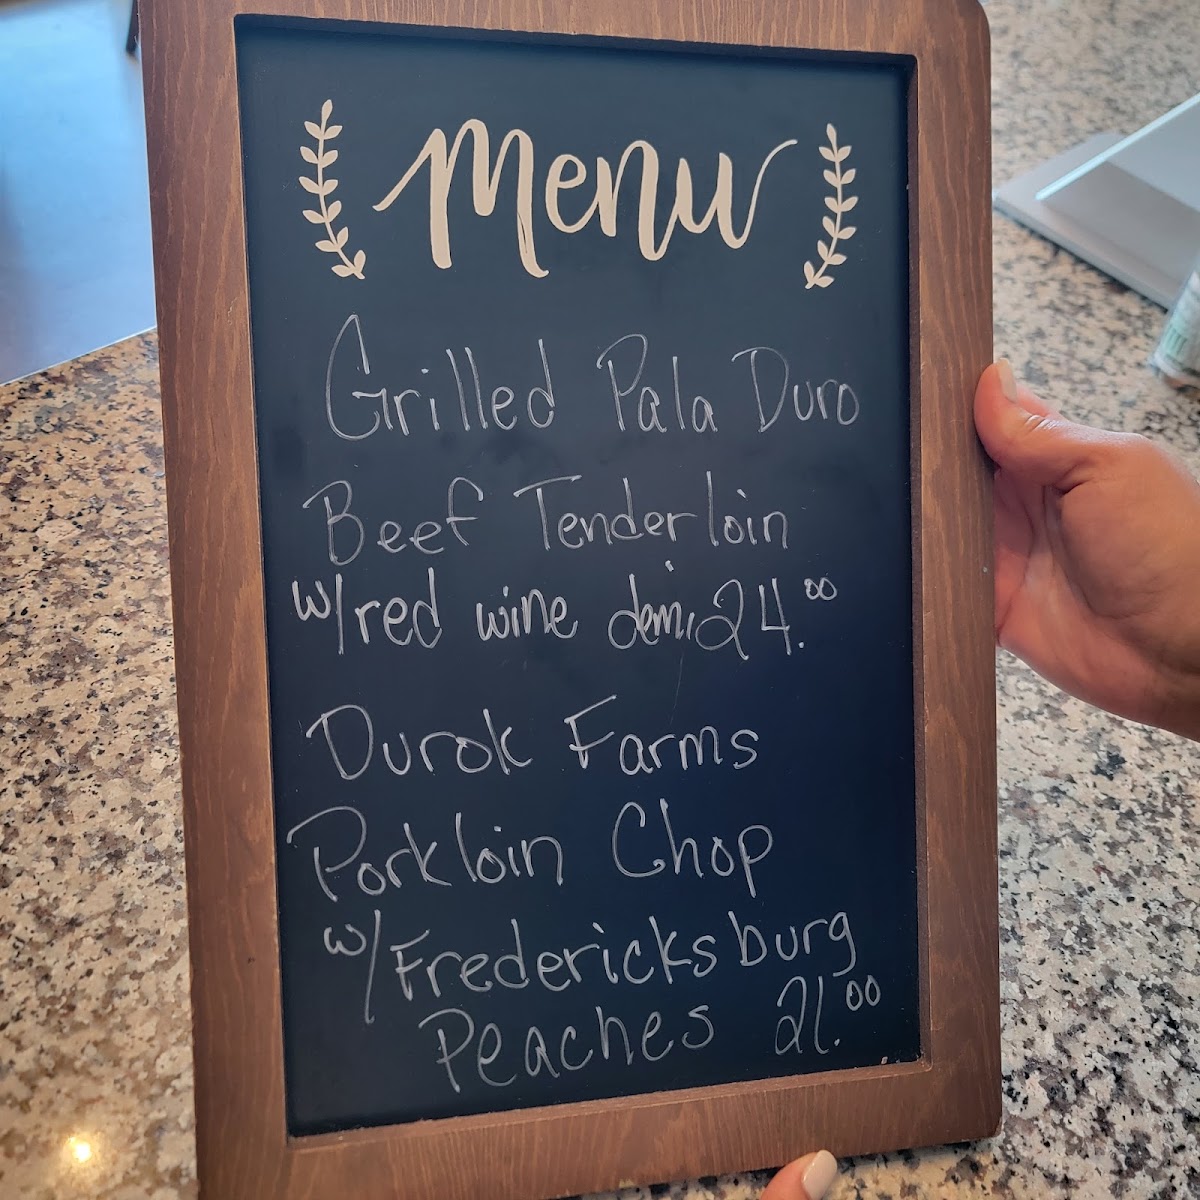 Menu
Grilled Pala Duro
Beef Tenderloin
w/red wine demi 24.00
Durok Farms
Porkloin Chop
w/Fredericksburg
Peaches 21.00